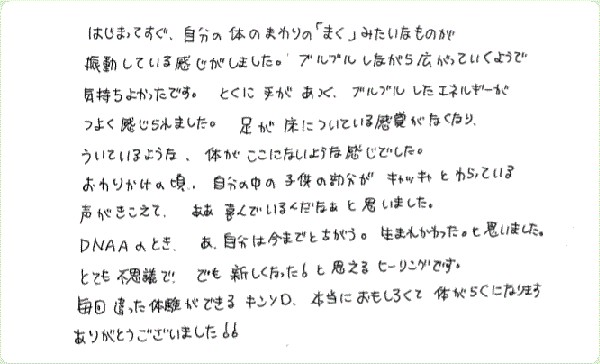 はじまってすぐ、自分の体のまわりの「まく」みたいなものが
振動している感じがしました。ブルブルしながら広がっていくようで
気持ちよかったです。とくに手があつく、ブルブルしたエネルギーが
つよく感じられました。足が床についている感覚がなくなり、
ういているような、体がここにないような感じでした。
おわりかけの頃、自分の中の子供の部分がキャッキャとわらっている
声がきこえて、ああ喜んでいるんだなぁと思いました。
DNAAのとき、あ、自分は今までとちがう。生まれかわった。と思いました。
とても不思議で、でも新しくなった!と思えるヒーリングです。
毎回違った体験ができるキンソD、本当におもしろくて体がらくになります
ありがとうございました!!